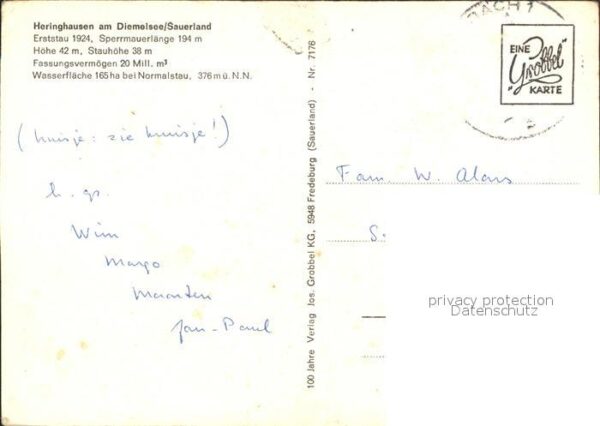 Heringhausen am Diemelsee/Sauerland
Erststau 1924, Sperrmauerlänge 194 m
Höhe 42 m, Stauhöhe 38 m
Fassungsvermögen 20 Mill. m³
Wasserfläche 165 ha bei Normalstau, 376 m ü. N.N.
(huisje: zie kruisje!)
h. gr.
Wim
Margo
Maarten
Jan-Paul
100 Jahre Verlag Jos. Grobbel KG, 5948 Fredeburg (Sauerland) - Nr. 7176
EINE
"Grobbel"
KARTE
Fam. W. Alars
S.
privacy protection
Datenschutz